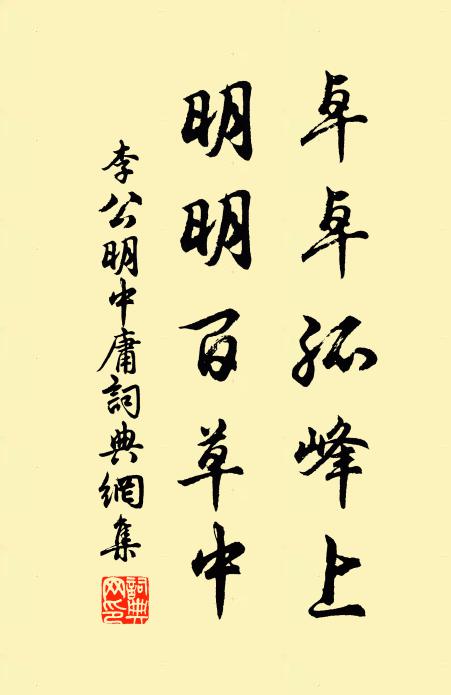 卓卓孤峰上
明明百草中
李公明中庸詞典網集
詞典网印